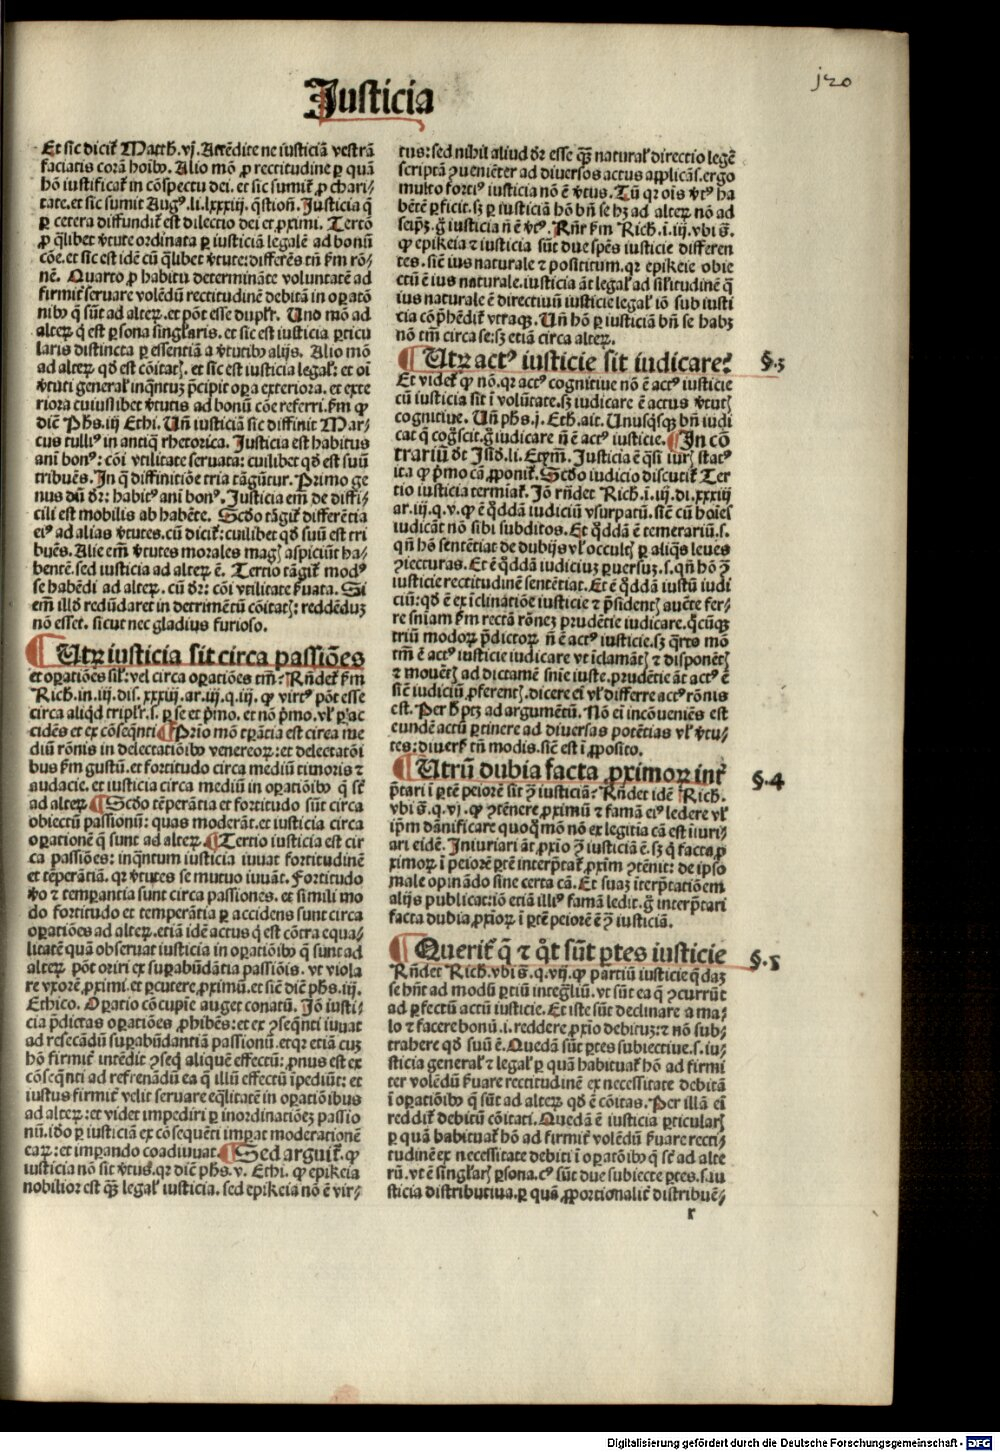 Justicia
j20
Et sic dicit᷑ Matth. vj. Attēdite ne iusticiā vestrā
faciatis corā hoīb⁹. Alio mō ꝓ rectitudine ꝑ quā
hō iustificat᷑ in cōspectu dei. et sic sumit᷑ ꝓ chari/
tate. et sic sumit Aug⁹. li. lxxxiij. q̄stion̄. Justicia q̄
ꝑ cetera diffundit᷑ est dilectio dei et ꝓximi. Tertō
ꝓ q̄libet v̄tute ordinata ꝑ iusticiā legalē ad bonū
cōe. et sic est idē cū q̄libet v̄tute: differēs tn̄ ẜm rō/
nē. Quarto ꝓ habitu determināte voluntatē ad
firmit᷑ seruare volēdū rectitudinē debitā in oꝑatō
nib⁹ q̄ sūt ad alteꝝ. et pōt esse duplr̄. Uno mō ad
alteꝝ q̄ est ꝑsona singl̄aris. et sic est iusticia ꝑticu
laris distincta ꝑ essentiā a v̄tutib⁹ alijs. Alio mō
ad alteꝝ qd̄ est cōitatꝭ. et sic est iusticia legal᷑: et oī
v̄tuti general᷑ inq̄ntuꝫ p̄cipit oꝑa exteriora. et exte
riora cuiuslibet v̄tutis ad bonū cōe referri. ẜm ꝙ
dic̄ Ph̄s. iij Ethi. Un̄ iusticiā sic diffinit Mar/
cus tulli⁹ in antiq̄ rhetorica. Justicia est habitus
ani bon⁹: cōi vtilitate seruata: cuilibet qd̄ est suū
tribuēs. In q̄ diffinitiōe tria tāgūtur. Primo ge
nus dū dr̄: habit⁹ ani bon⁹. Justicia em̄ de diffi/
cili est mobilis ab habēte. Scd̄o tāgit᷑ differētia
ei⁹ ad alias v̄tutes. cū dicit᷑: cuilibet qd̄ suū est tri
buēs. Alie em̄ v̄tutes morales magꝭ aspiciūt ha/
bentē. sed iusticia ad alteꝝ ē. Tertio tāgit᷑ mod⁹
se habēdi ad alteꝝ. cū dr̄: cōi vtilitate ẜuata. Si
em̄ illd̄ redūdaret in detrimētū cōitatꝭ: reddēduꝫ
nō esset. sicut nec gladius furioso.
Utꝝ iusticia sit circa passiōes
et oꝑatiōes sil᷑: vel circa oꝑatiōes tm̄: Rn̄det ẜm
Rich. in. iij. dis. xxxiij. ar. iij. q. iij. ꝙ virt⁹ pōt esse
circa aliqd̄ triplr̄. s. ꝑ se et p̄mo. et nō p̄mo. vl᷑ ꝑ ac
cidēs et ex cōseq̄nti Prio mō tꝑātia est circa me
diū rōnis in delectatiōib⁹ venereoꝝ: et delectatōi
bus ẜm gustū. et fortitudo circa mediū timoris ⁊
audacie. et iusticia circa mediū in oꝑatiōib⁹ q̄ sūt
ad alteꝝ Scd̄o tēperātia et fortitudo sūt circa
obiectū passionū: quas moderāt. et iusticia circa
oꝑationē q̄ sunt ad alteꝝ. Tertio iusticia est cir
ca passiōes: inq̄ntum iusticia iuuat fortitudinē
et tēperātiā. qꝛ v̄tutes se mutuo iuuāt. Fortitudo
v̄o ⁊ temꝑantia sunt circa passiones. et simili mo
do fortitudo et temperātia ꝑ accidens sunt circa
oꝑatiōes ad alteꝝ. etiā idē actus q̄ est cōtra equa/
litatē quā obseruat iusticia in oꝑatiōib⁹ q̄ sunt ad
alteꝝ pōt oriri ex suꝑabūdātia passiōis. vt viola
re vxorē ꝓximi. et ꝑcutere ꝓximū. et sic̄ dic̄ ph̄s. iij.
Ethico. Oꝑatio cōcupie auget conatū. Jō iusti/
cia p̄dictas oꝑatiōes ꝓhibēs: et ex ꝯseq̄nti iuuat
ad resecādū suꝑabūdantiā passionū. et qꝛ etiā cuꝫ
hō firmit᷑ intēdit ꝯseq̄ aliquē effectū: ꝓnus est ex
cōseq̄nti ad refrenādū ea q̄ illū effectū īpediūt: et
iustus firmit᷑ velit seruare eq̄litatē in oꝑatiōibus
ad alteꝝ: et videt impediri ꝑ inordinatiōeꝫ passio
nū. id̄o ꝑ iusticiā ex cōsequēti imꝑat moderationē
earꝝ: et imꝑando coadiuuat. Sed arguit᷑. ꝙ
iusticia nō sit v̄tus. qꝛ dic̄ ph̄s. v. Ethi. ꝙ epikeia
nobilior est qꝫ̄ legal᷑ iusticia. sed epikeia nō ē vir/
tus: sed nihil aliud dr̄ esse qꝫ̄ natural᷑ directio legē
scriptā ꝯueniēter ad diuersos actus applicās. ergo
multo forti⁹ iusticia nō ē v̄tus. Tū qꝛ oīs v̄t⁹ ha
bētē ꝑficit. sꝫ ꝑ iusticiā hō bn̄ se hꝫ ad alteꝝ nō ad
seip̄ꝫ. g̊ iusticia n̄ ē v̄t⁹. Rn̄r ẜm Rich. i. iij. vbi s̄.
ꝙ epikeia ⁊ iusticia sūt due sp̄es iusticie differen
tes. sic̄ ius naturale ⁊ positiuum. qꝛ epikeie obie
ctū ē ius naturale. iusticia āt legal᷑ ad sil᷑itudinē q̄
ius naturale ē directiuū iusticie legal᷑ iō sub iusti
cia cōp̄hēdit᷑ vtraqꝫ. Un̄ hō ꝑ iusticiā bn̄ se habꝫ
nō tm̄ circa se: sꝫ etiā circa alteꝝ.
Utꝝ act⁹ iusticie sit iudicare?
§.3
Et videt᷑ ꝙ nō. qꝛ act⁹ cognitiue nō ē act⁹ iusticie
cū iusticia sit ī volūtate. sꝫ iudicare ē actus v̄tutꝭ
cognitiue. Un̄ ph̄s. j. Eth. ait. Unusqꝫqꝫ bn̄ iudi
cat q̄ cog̊scit. g̊ iudicare n̄ ē act⁹ iusticie. In cō
trariū dt̄ Isid̄. li. Etym̄. Justicia ē q̄si iurꝭ stat⁹
ita ꝙ p̄mo cā ꝓponit᷑. Scd̄o iudicio discutit᷑ Ter
tio iusticia termiat᷑. Jō rn̄det Rich. i. iij. di. xxxiij
ar. iij. q. v. ꝙ ē q̄dā iudiciū vsurpatū. sic̄ cū hoīes
iudicāt nō sibi subditos. Et q̄ddā ē temerariū. s.
qn̄ hō sentētiat de dubijs vl᷑ occultꝭ ꝑ aliq̄s leues
ꝯiecturas. Et ē q̄ddā iudiciuꝫ ꝑuersuꝫ. s. qn̄ hō ꝯ
iusticie rectitudinē sentētiat. Et ē q̄ddā iustū iudi
ciū: qd̄ ē ex īclinatiōe iusticie ⁊ p̄sidentꝭ aucte fer/
re sn̄iam ẜm rectā rōneꝫ prudētie iudicare. q̄cūqꝫ
triū modoꝝ p̄dictoꝝ n̄ ē act⁹ iusticie. sꝫ q̄rto mō
tm̄ ē act⁹ iusticie iudicare vt īclamātꝭ ⁊ disponētꝭ
⁊ mouētꝭ ad dictamē sn̄ie iuste. prudētie āt act⁹ ē
sic̄ iudiciū ꝓferentꝭ. dicere ei vl᷑ differre act⁹ rōnis
est. Per h̄ ptꝫ ad argumētū. Nō ei incōueniēs est
eundē actū ꝑtinere ad diuersas potētias vl᷑ v̄tu/
tes: diuerẜ tn̄ modis. sic̄ est ī ꝓposito.
Utrū dubia facta ꝓximoꝝ int᷑
§.4
p̄tari ī ꝑtē peiorē sit ꝯ iusticiā: Rn̄det idē Rich.
vbi s̄. q. vj. ꝙ ꝯtēnere ꝓximū ⁊ famā ei⁹ ledere vl᷑
ip̄m dānificare quoq̊mō nō ex legitia cā est iiuri/
ari eidē. Iniuriari āt ꝓxio ꝯ iusticiā ē. sꝫ q̄ facta ꝓ
ximoꝝ ī peiorē ꝑtē interp̄tat᷑ ꝓxim̄ ꝯtēnit: de ipso
male opinādo sine certa cā. Et suaꝫ iterp̄tatiōem
alijs publicat: iō etiā illi⁹ famā ledit. g̊ interp̄tari
facta dubia ꝓxioꝝ ī ꝑtē peiorē ē ꝯ iusticiā.
Querit᷑ q̄ ⁊ q̊t sūt ꝑtes iusticie
§.5
Rn̄det Rich. vbi s̄. q. vij. ꝙ partiū iusticie q̄daꝫ
se hn̄t ad modū ꝑtiū inteḡliū. vt sūt ea q̄ ꝯcurrūt
ad ꝑfectū actū iusticie. Et iste sūt declinare a ma/
lo ⁊ facere bonū. i. reddere ꝓxīo debituꝫ: ⁊ nō sub/
trahere qd̄ suū ē. Quedā sūt ꝑtes subiectiue. s. iu/
sticia general᷑ ⁊ legal᷑ ꝑ quā habituat᷑ hō ad firmi
ter volēdū ẜuare rectitudinē ex necessitate debitā
ī oꝑatiōib⁹ q̄ sūt ad alteꝝ qd̄ ē cōitas. Per illā ei
reddit᷑ debitū cōitati. Quedā ē iusticia ꝑticularꝭ
ꝑ quā habituat᷑ hō ad firmit᷑ volēdū ẜuare recti/
tudinē ex necessitate debiti ī oꝑatōib⁹ q̄ sūt ad alte
rū. vt ē singl̄arꝭ ꝑsona. c⁹ sūt due subiecte ꝑtes. s. iu
sticia distributiua. ꝑ quā ꝓportionalit᷑ distribuē/
r
Digitalisierung gefördert durch die Deutsche Forschungsgemeinschaft - DFG